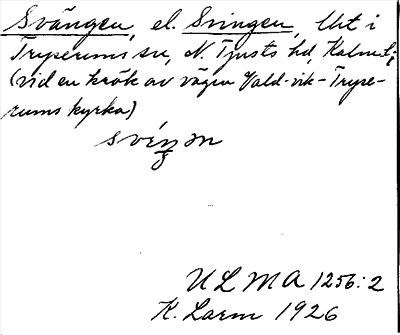 Svängen, el. Svingen, Uht i
Tryserums sn, N Tjusts hd, Kalm.l.;
(vid en krök av vägen Vald-vik-Tryse-
rums kyrka)
ULMA 1256:2
K. Larm 1926